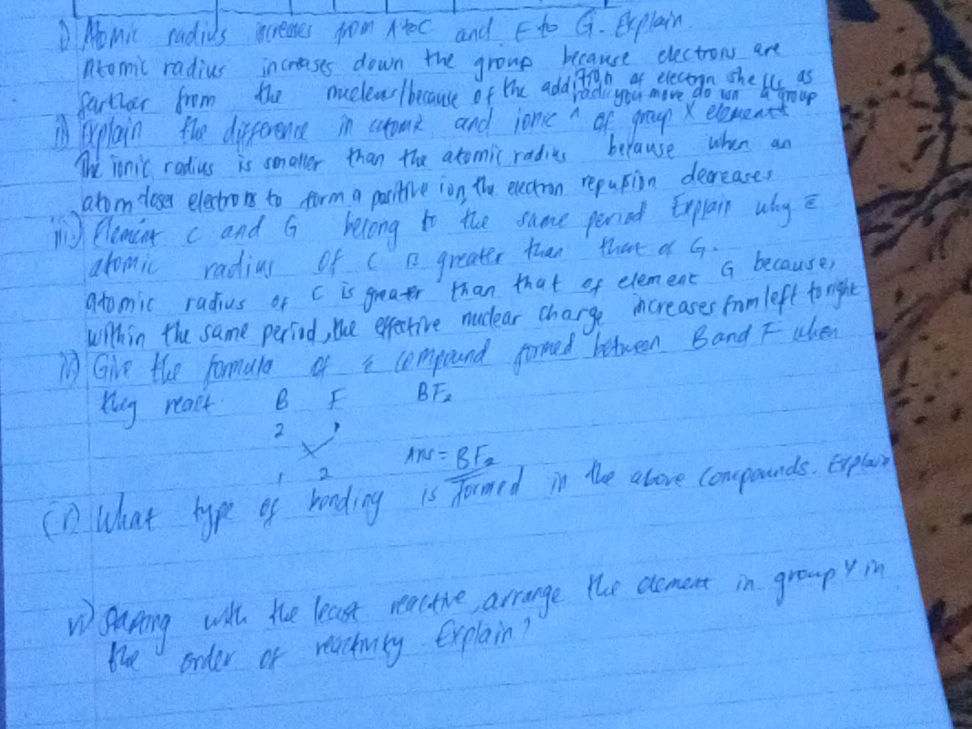 i) Atomic radius increases from A to C and E to G. Explain.
Atomic radius increases down the group because electrons are
farther from the nucleus/because of the addition of electron shells as
you move down a group
ii) Explain the difference in atomic and ionic ^ radii of group X elements
The ionic radius is smaller than the atomic radius because when an
atom loses electrons to form a positive ion, the electron repulsion decreases
iii) Element C and G belong to the same period Explain why
atomic radius of C is greater than that of G.
atomic radius of C is greater than that of element G because,
within the same period, the effective nuclear charge increases from left to right
iv) Give the formula of compound formed between B and F when
they react. B F BF2
2 1
1 2 Ans = BF2
(v) What type of bonding is formed in the above compounds. Explain
vi) Starting with the least reactive, arrange the element in group Y in
the order of reactivity. Explain?